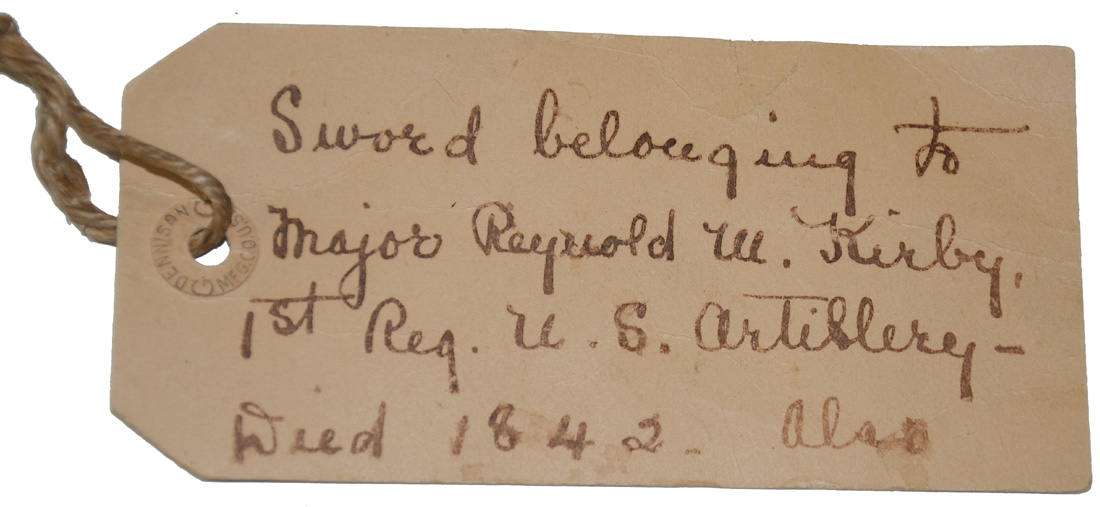 Sword belonging to
Major Reynold M. Kirby,
1st Reg. U.S. Artillery –
Died 1842. Also
DENNISON MFG CO USA